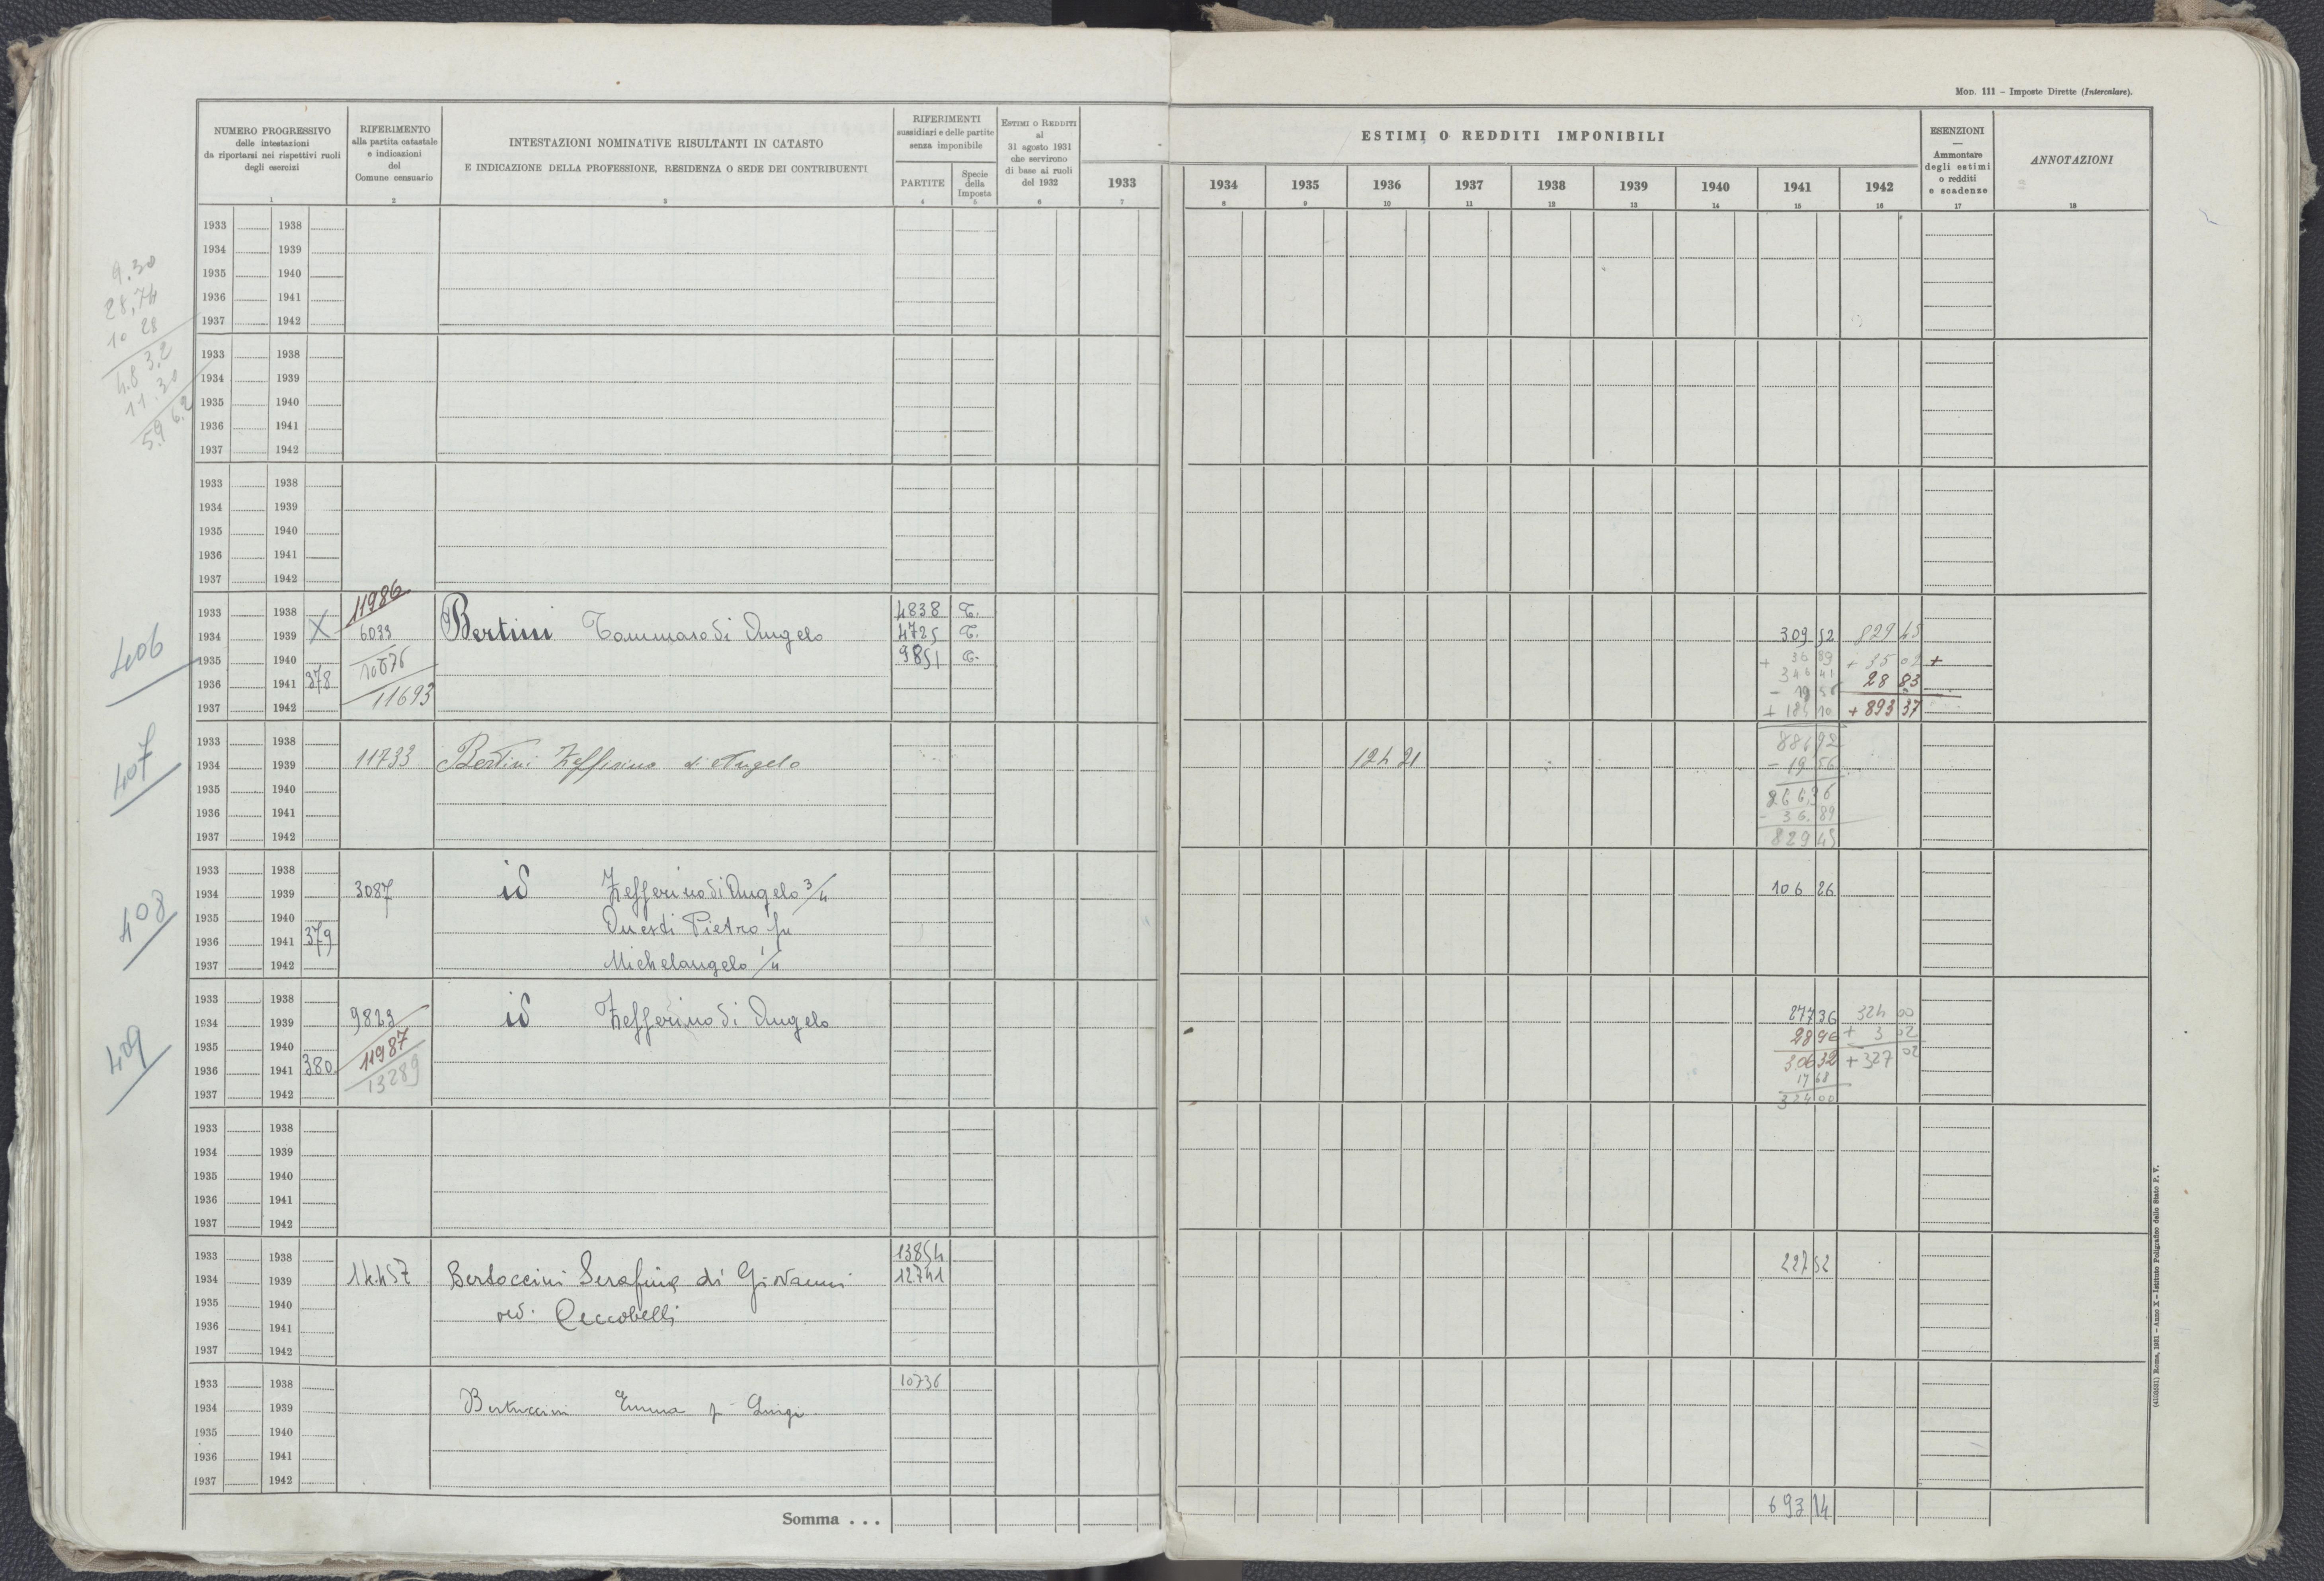 Mod. 111 – Imposte Dirette (Intercalare).
NUMERO PROGRESSIVO
delle intestazioni
da riportarsi nei rispettivi ruoli
degli esercizi
1
RIFERIMENTO
alla partita catastale
e indicazioni
del
Comune censuario
2
INTESTAZIONI NOMINATIVE RISULTANTI IN CATASTO
E INDICAZIONE DELLA PROFESSIONE, RESIDENZA O SEDE DEI CONTRIBUENTI
3
RIFERIMENTI
sussidiari e delle partite
senza imponibile
PARTITE
4
Specie
della
Imposta
5
Estimi o Redditi
al
31 agosto 1931
che servirono
di base ai ruoli
del 1932
6
1933
7
ESTIMI O REDDITI IMPONIBILI
1934 1935 1936 1937 1938 1939 1940 1941 1942
8 9 10 11 12 13 14 15 16
ESENZIONI
—
Ammontare
degli estimi
o redditi
e scadenze
17
ANNOTAZIONI
18
9.30
28,74
10 28
48 32
11.30
59 62
1933 1938
1934 1939
1935 1940
1936 1941
1937 1942
1933 1938
1934 1939
1935 1940
1936 1941
1937 1942
1933 1938
1934 1939
1935 1940
1936 1941
1937 1942
406
11986
1933 1938 X 4838 T.
1934 1939 6033 Bertini Tommaso di Angelo 4725 T. 309 52 829 45
1935 1940 10676 9851 T. + 36 89 + 35 02 +
1936 1941 378 346 41 28 83
1937 1942 11693 + 185 10 + 893 37
407
1933 1938
1934 1939 11733 Bertini Zeffirino di Angelo 124 21 - 19 56
1935 1940
1936 1941 - 36.89
1937 1942 829 45
408
1933 1938
1934 1939 3087 id Zefferino di Angelo 3/4 106 26
1935 1940 Questi Pietro fu
1936 1941 379
1937 1942 Michelangelo 1/4
409
1933 1938
1934 1939 9823 id Zefferino di Angelo 277 36 324 00
1935 1940 11987 28 96 + 3 02
1936 1941 380 306 32 + 327 02
13289 17 68
1937 1942 324 00
1933 1938
1934 1939
1935 1940
1936 1941
1937 1942
1933 1938 13854 227 52
1934 1939 14457 Bertoccini Serafina di Giovanni 12741
1935 1940 ved. Ceccobelli
1936 1941
1937 1942
1933 1938 10736
1934 1939 Bertuccini Emma fu Luigi
1935 1940
1936 1941
1937 1942
Somma . . . 693 14
(4103631) Roma, 1931 – Anno X – Istituto Poligrafico dello Stato P. V.